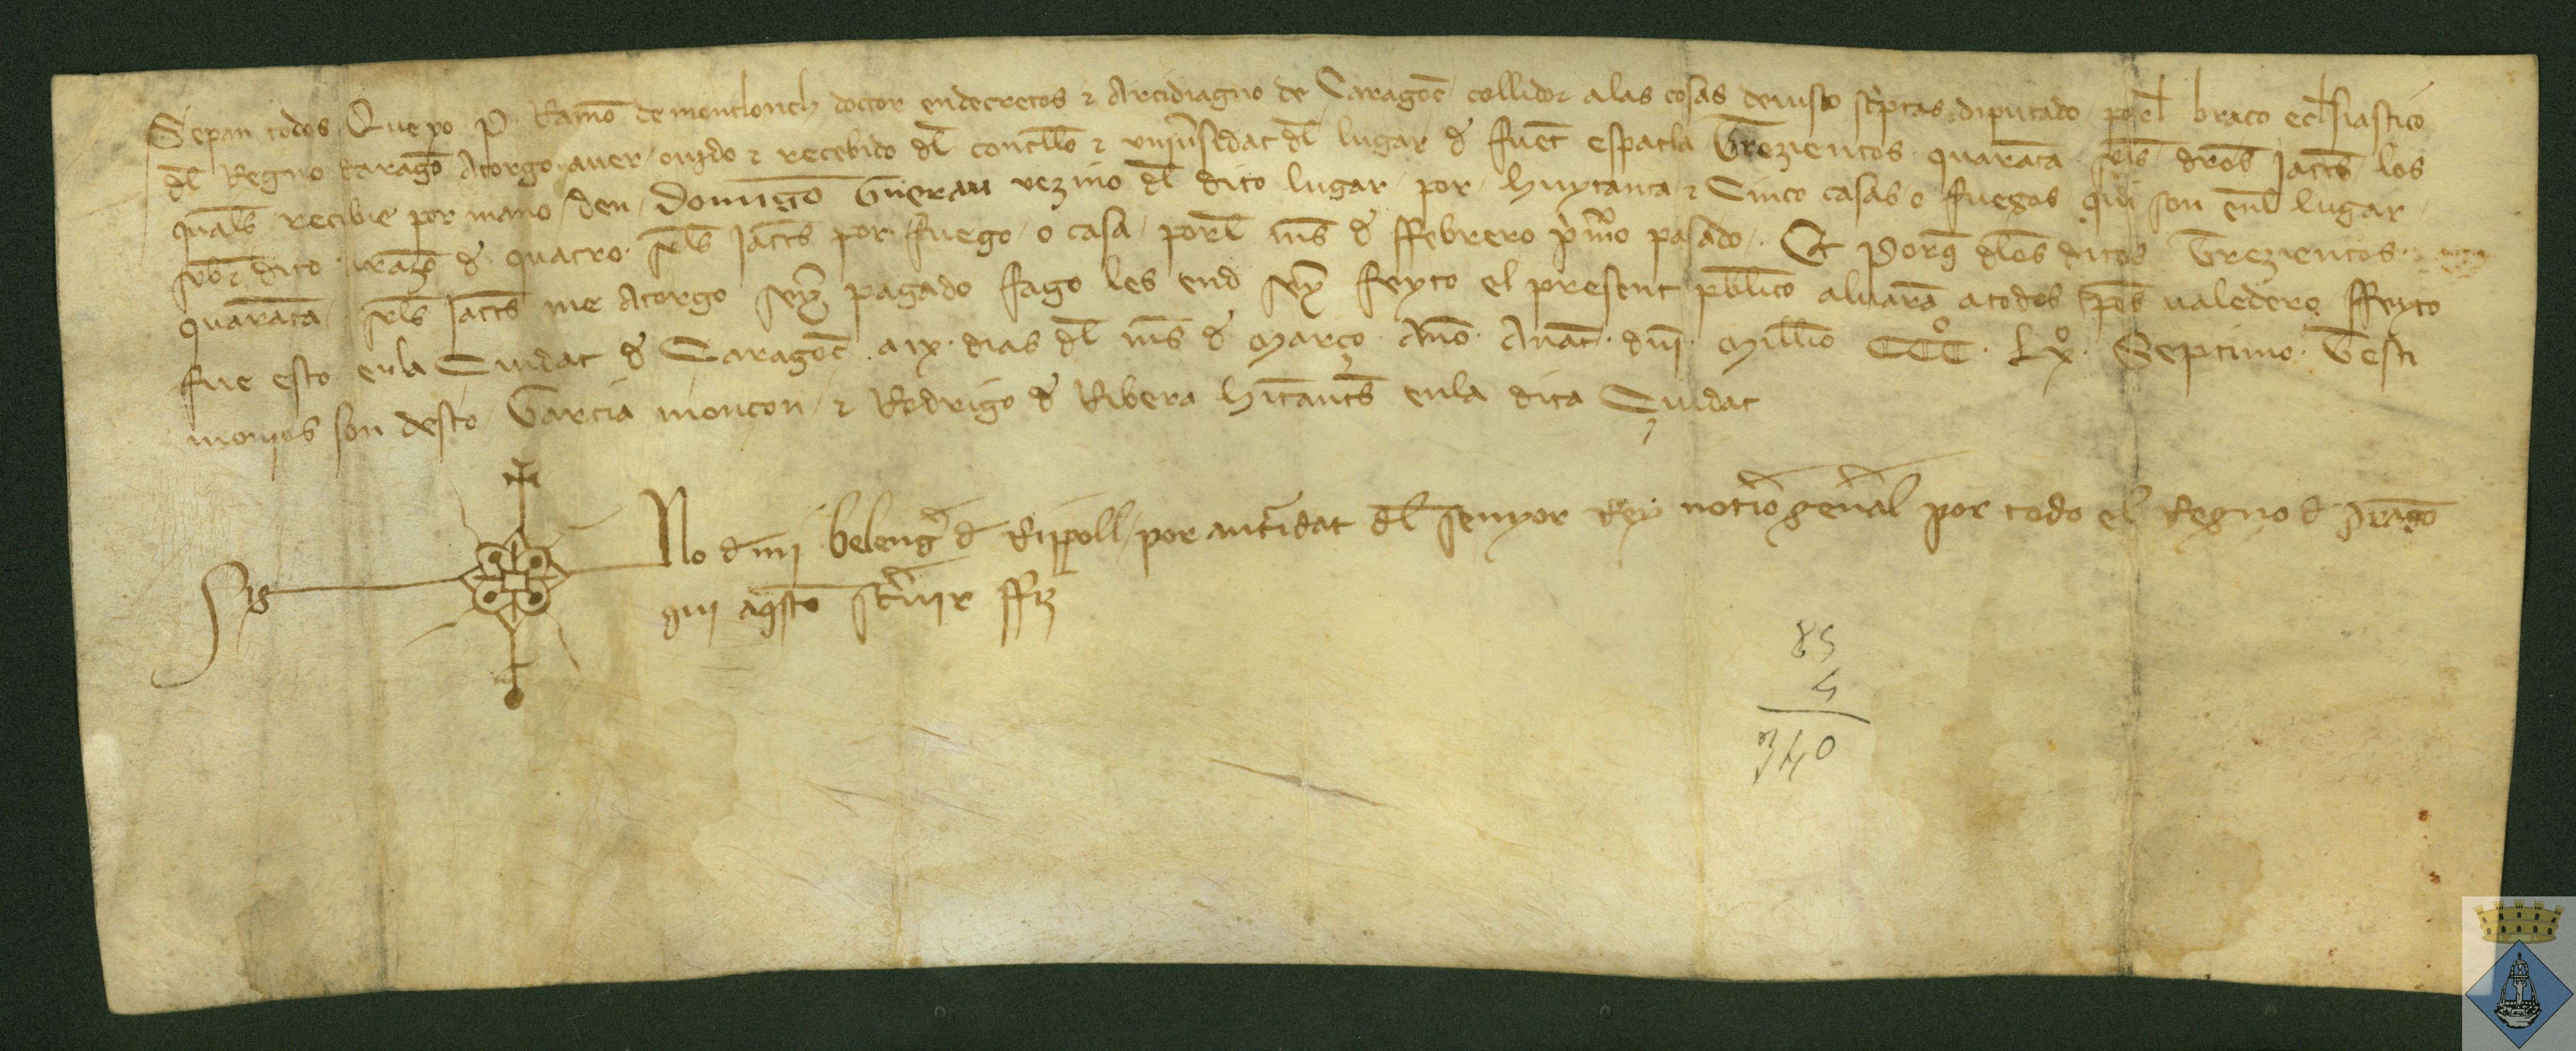 Sepan todos Que yo P Ramo de montlonch doctor endecretos & Arcidiagno de Caragoc collidor a las cosas deiusto scptas diputado porel braco eclesiastico
dl Regno daragō Atorgo auer ouido & recebido dl concllo & uniusidat dl lugar d fuet espatla Trezientos quarāta sls dros Jaccs los
quals recibie por mano den Domīgo Guerau vezino dl dito lugar por huytanta & Cinco casas o fuegos qui son enl lugar
sobr dito a razō d quatro sls Jaccs por fuego o casa porel ms d ffebrero prmo pasado Et Porq dlos ditos Trezientos
quarāta sls Jaccs me Atorgo seyer pagado fago les end seyer feyto el present pblico aluarā a todos tps ualedero ffeyto
fue esto enla Ciudat d Caragoc a ix dias dl ms d Março Ano Anat dni Millo CCCº Lxº Septimo Testi
monios son desto Garcia monçon & Rodrigo d Ribera hitants enla dita Ciudat
Sig No d mi beleng d Rippoll por autidat dl senyor Rey notio genal por todo el Regno d Aragō
qui aqsto sciuir ffiz
85
4
340